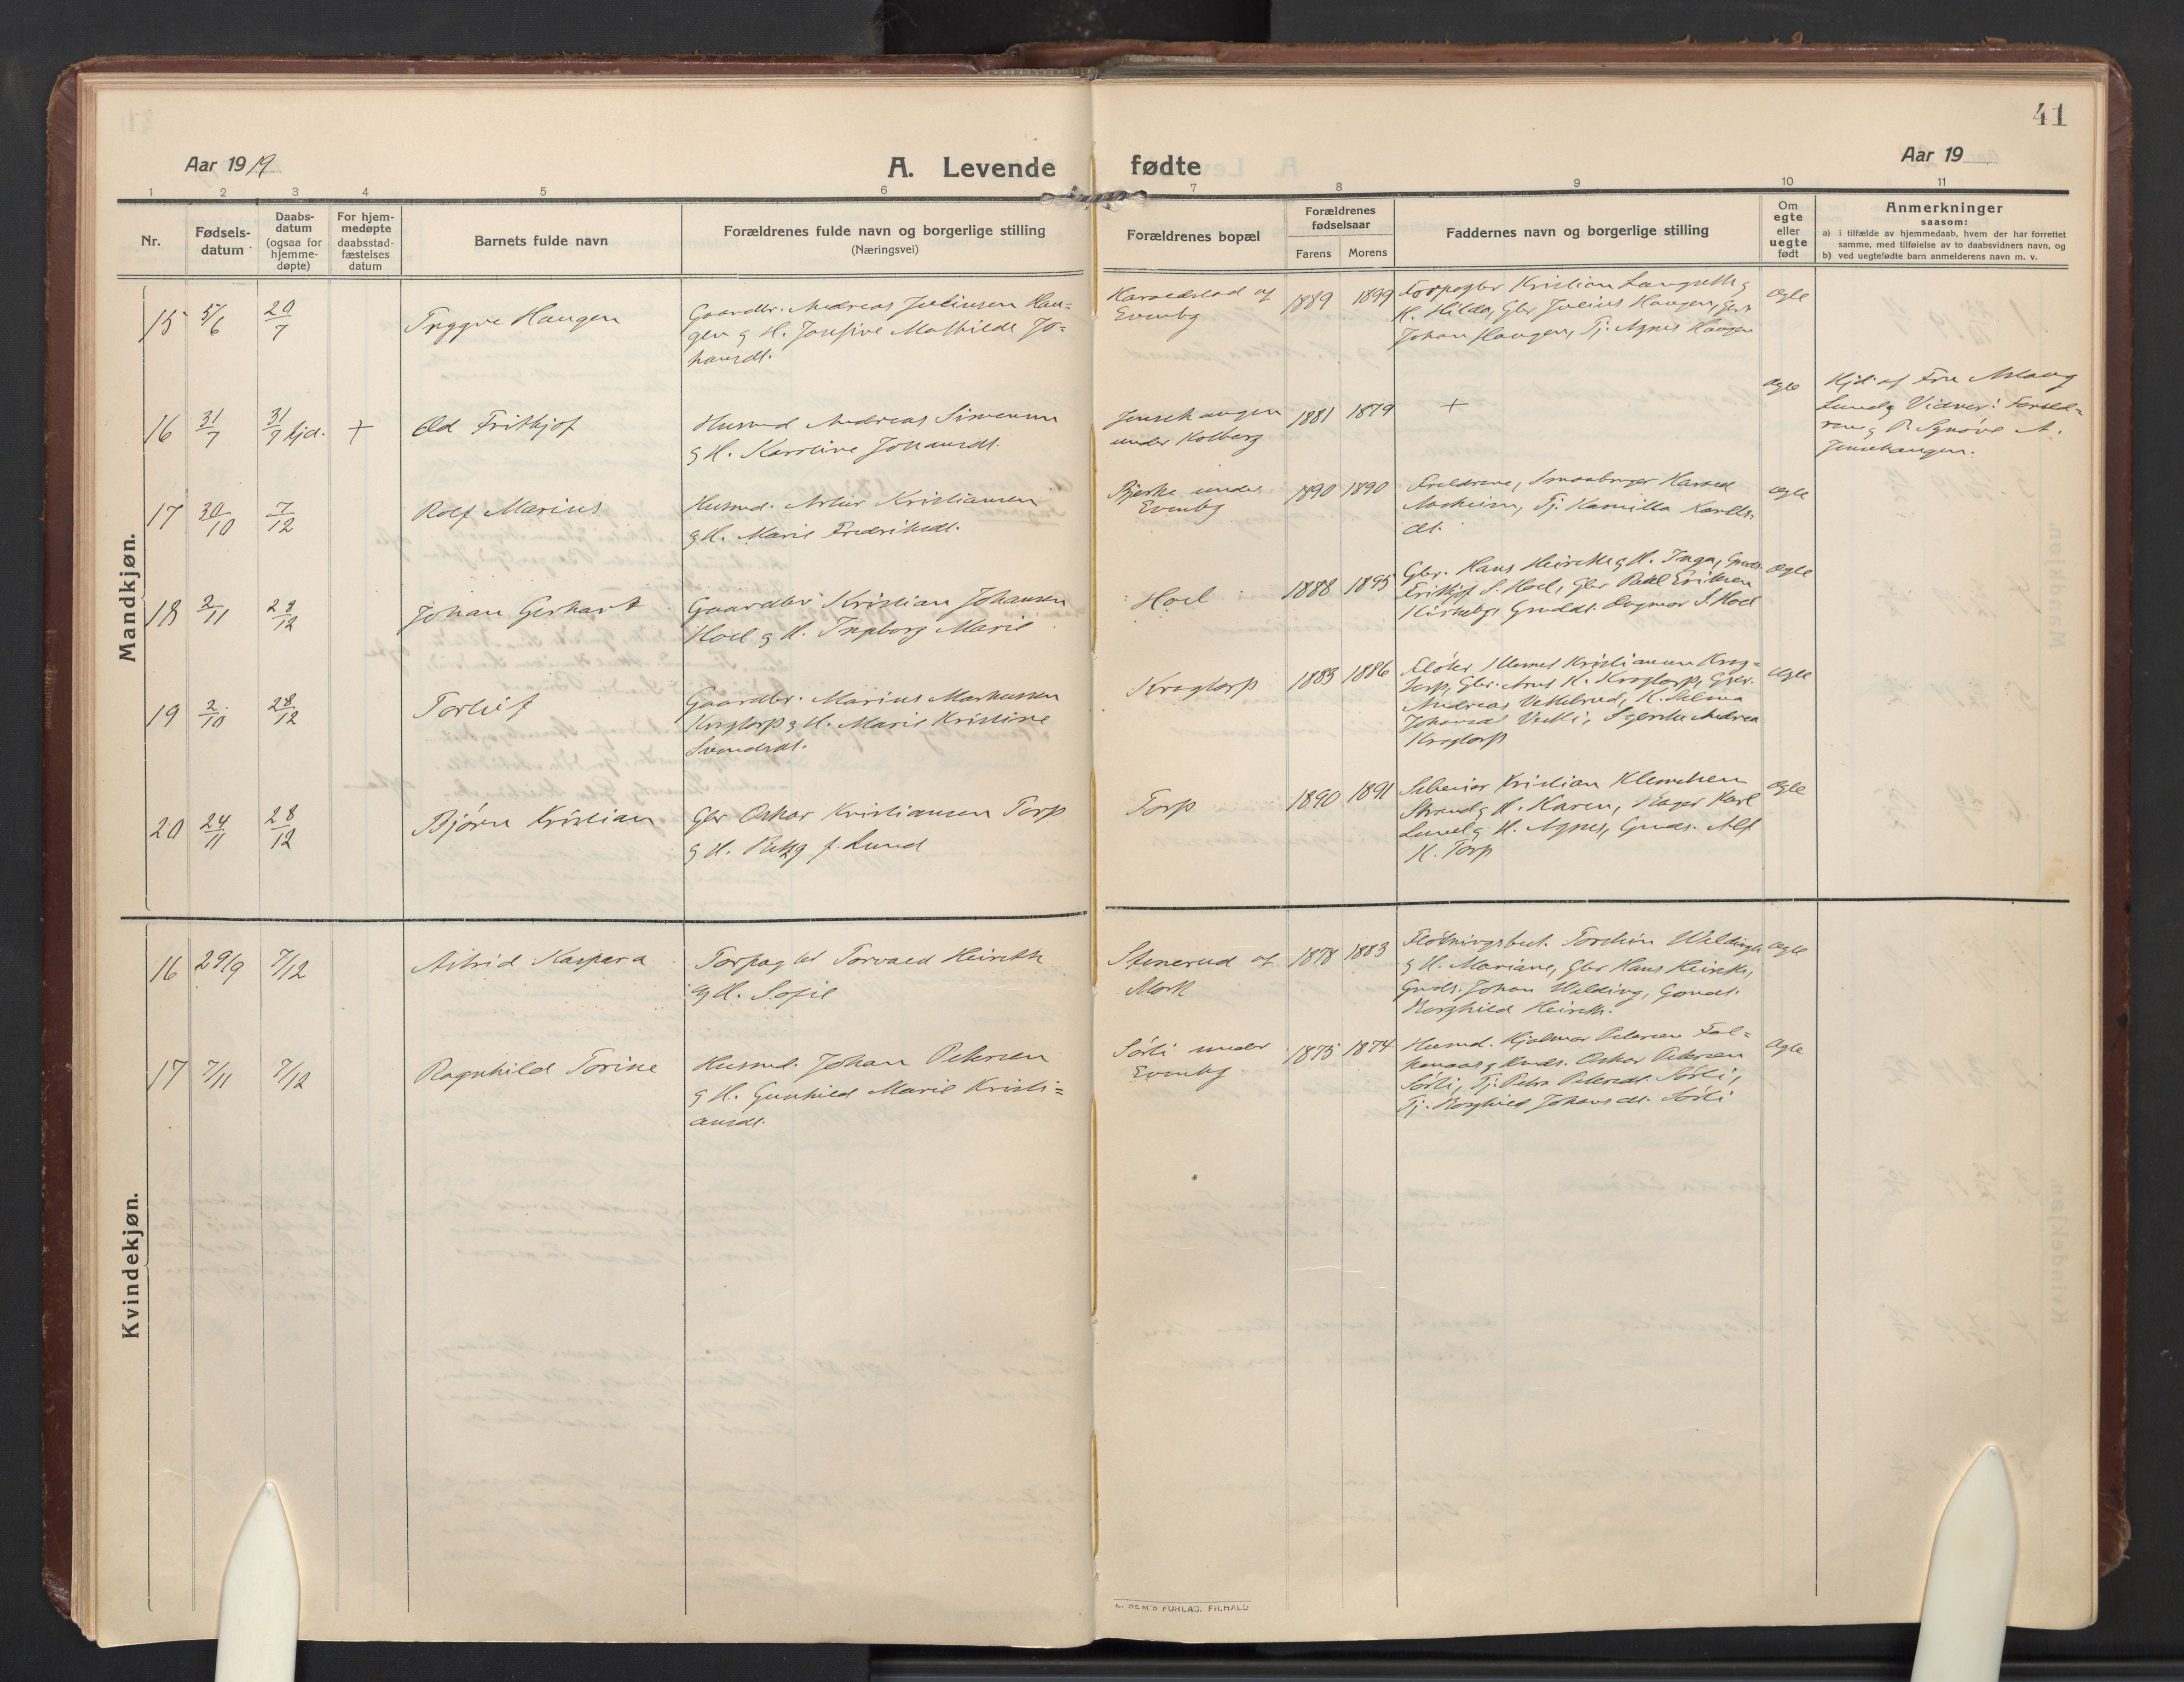 41
Aar 1919
A. Levende fødte
Aar 19
1 2 3 4 5 6 7 8 9 10 11
Nr.
Fødsels-
datum
Daabs-
datum
(ogsaa for
hjemme-
døpte)
For hjem-
medøpte
daabsstad-
fæstelses
datum
Barnets fulde navn
Forældrenes fulde navn og borgerlige stilling
(Næringsvei)
Forældrenes bopæl
Forældrenes
fødselsaar
Farens Morens
Faddernes navn og borgerlige stilling
Om
egte
eller
uegte
født
Anmerkninger
saasom:
a) i tilfælde av hjemmedaab, hvem der har forrettet
samme, med tilføielse av to daabsvidners navn, og
b) ved uegtefødte barn anmelderens navn m. v.
Mandkjøn.
15 5/6 20/7 Tryggve Haugen
Gaardbr. Andreas Juliusen Hau=
gen g H. Josefine Mathilde Jo=
hansdt.
Haraldstad af
Evenby
1889 1899
Torpagbr Kristian Langseth g
H. Hilda, Gbr Julius Haugen,
Johan Haugen, Tj. Agnes Haugen
Ægte
16 31/7 31/7 hjd. + Odd Frithjof
Husmd Andreas Simensen
g H. Karoline Johansdt.
Jensehaugen
under Kolberg
1881 1879
+
Ægte
Hjd. af Fru Aslaug
Lund g Vidner: Foræld=
rene g P. Synøve A.
Jensehaugen.
17 30/10 7/12 Rolf Marius
Husmd. Artur Kristiansen
g H. Marie Fredriksdt.
Bjerke under
Evenby
1890 1890
Forældrene, Smaabruger Harald
Aasheim, Tj. Kamilla Karls=
dt.
Ægte
18 2/11 28/12 Johan Gerhart
Gaardbr Kristian Johansen
Hoel g H. Ingeborg Marie
Hoel
1888 1895
Gbr. Hans Heireth g H. Inga, Gmds.
Frithjof S. Hoel, Gbr Paul Eriksen
Kirkeby, Gmddt. Dagmar J. Hoel
Ægte
19 2/10 28/12 Torleif
Gaardbr. Marius Markussen
Krogtorp g H. Marie Kristine
Svendsdt.
Krogtorp
1883 1886
Fløter Kristiansen Krog=
torp, Gbr. K. Krogtorp,
Andreas Vettelrud, K. Selma
Johansdt. Andrea
Krogtorp
Ægte
20 24/11 28/12 Bjørn Kristian
Gbr Oskar Kristiansen Torp
g H. f. Lund
Torp
1890 1891
Kristian Klemetsen
Strand g H. Karen, Bager Karl
Lund g H. Agnes, Gmds. Alf
H. Torp
Ægte
Kvindekjøn.
16 29/9 7/12 Astrid Kaspara
Torpag br Torvald Heireth
g H. Sofie
Stenerud af
Mork
1878 1883
Fløtningsbest. Torstein Welding
g H. Mariane, Gbr Hans Heireth,
Gmds. Johan Welding, Gmdt.
Borghild Heireth.
Ægte
17 7/11 7/12 Ragnhild Torine
Husmd. Johan Petersen
g H. Gunhild Marie Kristi=
ansdt.
Sørli under
Evenby.
1875 1874
Husmd. Hjalmar Petersen Fal=
kenaas g Hmds. Oskar Petersen
Sørli, Tj. Petra Petersdt. Sørli,
Tj. Borghild Johansdt. Sørli
Ægte
E. SEM'S FORLAG. FR.HALD